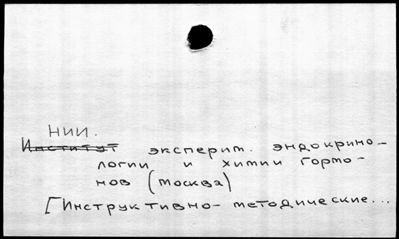 НИИ.
Институт эксперим. эндокрино-
логии и химии гормо-
нов (Москва)
[Инструктивно-методические...